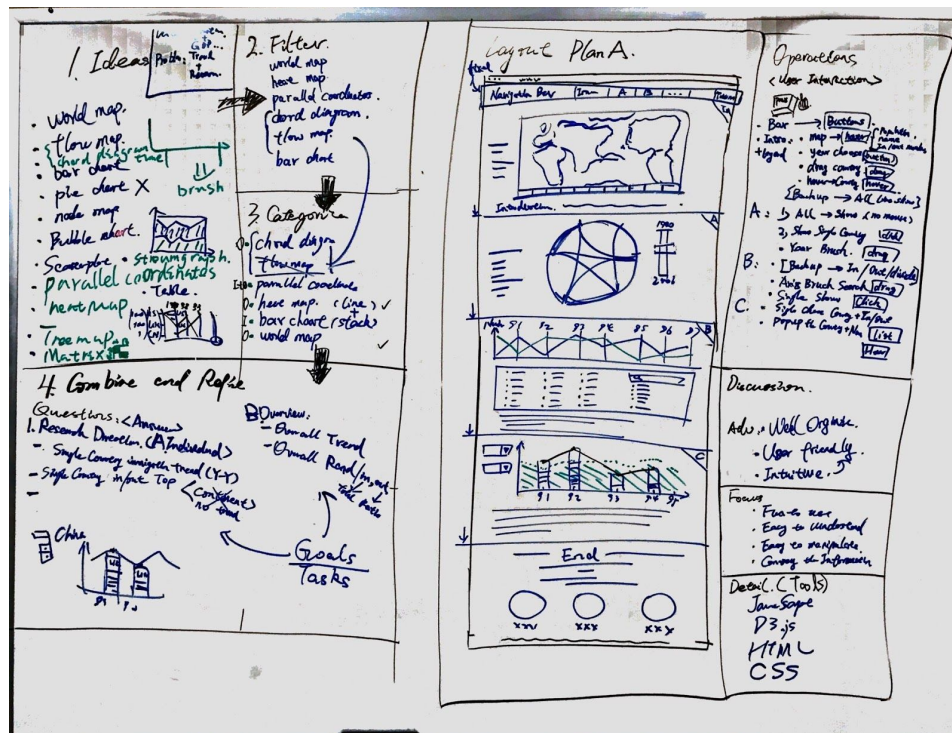 1. Ideas
Problem: Trend
world map.
flow map.
chord diagram
time
bar chart
pie chart X
node map
Bubble chart.
streamgraph.
parallel coordinates
Table.
heatmap
Treemap
Matrix
brush
2. Filter.
world map
heat map.
parallel coordinates.
chord diagram.
flow map.
bar chart
3. Categorize
chord diagram
flow map
parallel coordinates
heat map. (Line) ✓
bar chart (stack)
world map ✓
4. Combine and Refine
Questions: <Answer>
1. Research Direction. (A Individual)
Single Country immigrath trend (Y-Y)
Single Country in/out Top
<Continent>
no trend
China
91 92
Overview:
- Overall Trend
- Overall Rank/in,out
Goals
Tasks
Layout Plan A.
fixed
Navigation Bar | Intro | A | B | ...
Introduction.
A
1980
B
91 92 93 94 95 96
C
91 92 93 94 95
End
xxx xxx xxx
Operations
<User Interaction>
Bar → Buttons
Intro: map → hover
name
+ legend
year choose button
drag country drag
hover country hover
[Backup → All (no show)
A: 1) All → Show (no mouse)
2) Show Single Country click
Year Brush. drag
B: [Backup → In/Out/
Axis Brush Search drag
Single Show Click
C. Single show Country + In/Out
List
Discussion.
Adv. Well Organise.
User friendly.
Intuitive.
Focus
Easy to understand
Easy to manipulate.
Convey the Information
Detail. (Tools)
JavaScript
D3.js
HTML
CSS